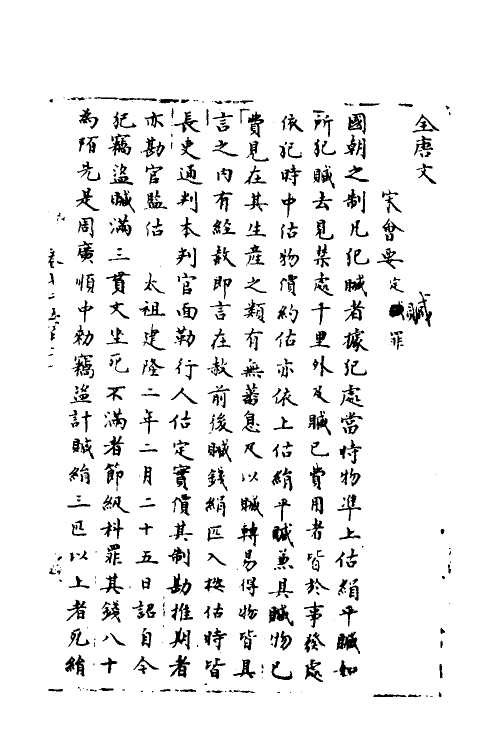 全唐文
宋會要 定贓罪
贓
國朝之制凡犯贓者據犯處當時物準上估絹平贓如
所犯贓去見禁處千里外及贓已費用者皆於事發處
依犯時中估物價約估亦依上估絹平贓兼具贓物已
費見在其生產之類有無蕃息及以贓轉易得物皆具
言之内有經赦即言在赦前後贓錢絹匹入按估時皆
長吏通判本判官面勒行人估定實價其制勘推期者
亦勘官監估 太祖建隆二年二月二十五日詔自今
犯竊盜贓滿三貫文坐死不滿者節級科罪其錢八十
為陌先是周廣順中勅竊盜計贓絹三匹以上者死絹